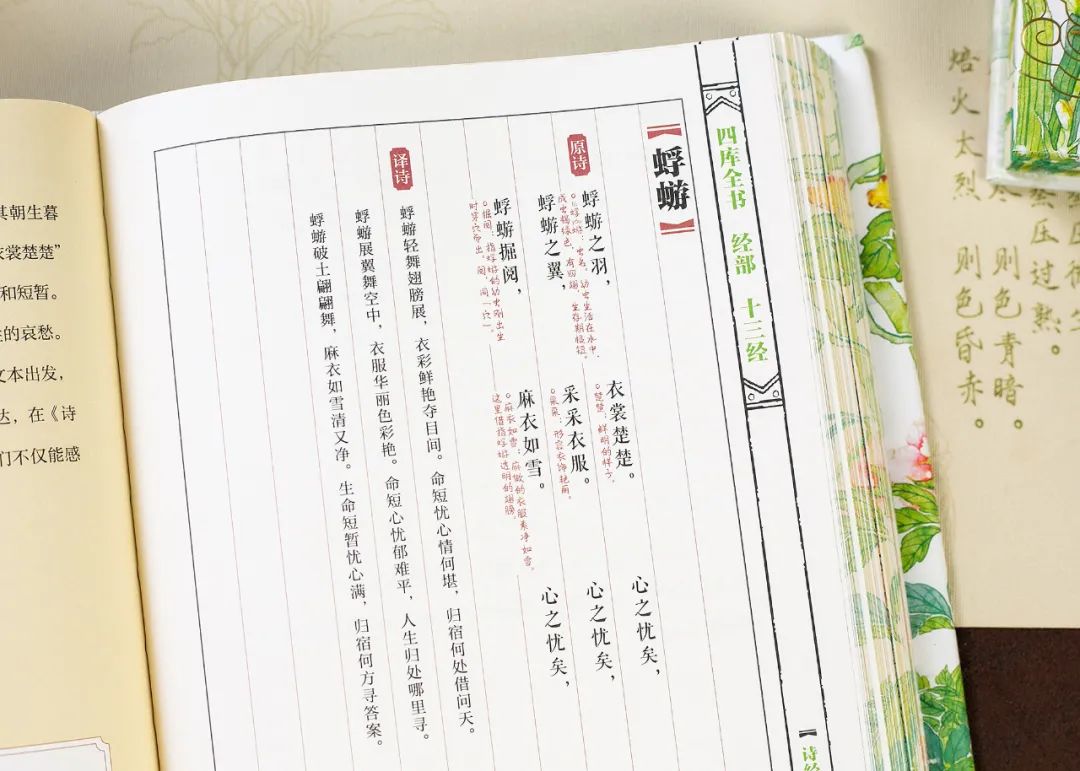 四库全书 经部 十三经
【诗经
【蜉蝣】
原诗
蜉蝣之羽，衣裳楚楚。心之忧矣，
○蜉蝣：虫名。幼虫生活在水中，
成虫褐绿色，有四翅，生存期极短。
○楚楚：鲜明的样子。
蜉蝣之翼，采采衣服。心之忧矣，
○采采：形容衣饰艳丽。
蜉蝣掘阅，麻衣如雪。心之忧矣，
○掘阅：指蜉蝣的幼虫刚出生
时穿穴而出。阅，同“穴”。
○麻衣如雪：麻做的衣服素净如雪。
这里借指蜉蝣透明的翅膀。
译诗
蜉蝣轻舞翅膀展，衣彩鲜艳夺目间。命短忧心情何堪，归宿何处借问天。
蜉蝣展翼舞空中，衣服华丽色彩艳。命短心忧郁难平，人生归处哪里寻。
蜉蝣破土翩翩舞，麻衣如雪清又净。生命短暂忧心满，归宿何方寻答案。
其朝生暮
衣裳楚楚”
和短暂。
的哀愁。
文本出发，
达，在《诗
们不仅能感
压过熟。
则色青暗。
焙火太烈 则色昏赤。